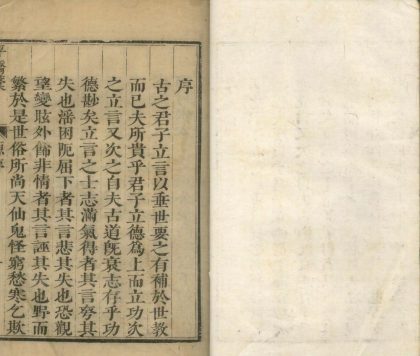 序
古之君子立言以垂世要之有補於世教
而已夫所貴乎君子立德爲上而立功次
之立言又次之自夫古道旣衰志存乎功
德尠矣立言之士志滿氣得者其言夸其
失也潘困阨屈下者其言悲其失也恐觀
望變眩外飾非情者其言誣其失也野而
繁於是世俗所尚天仙鬼怪窮愁寒乞欺